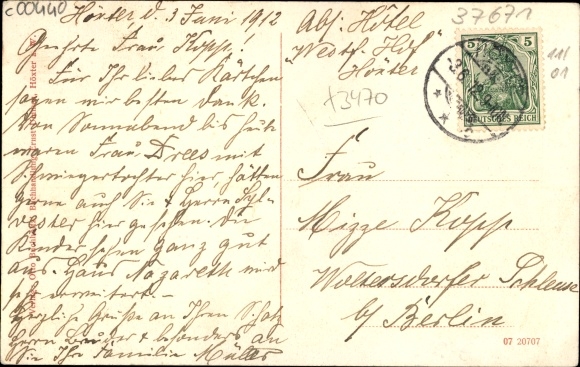 c00440
Höxter d. 3 Juni 1912
Geehrte Frau Kopp!
Für Ihr liebes Kärtchen
sagen wir besten Dank.
Von Sonnabend bis heute
waren Frau Drees mit
Schwiegertochter hier, hätten
gerne auch Sie & Herrn Syl-
vester hier gesehen. Die
Kinder sehen ganz gut
aus. Haus Nazareth wird
sehr erweitert. –
Herzliche Grüße an Ihren Schatz
Herrn Bruder & besonders an
Sie Ihre Familie Müller
Abs: Hôtel
"Westf. Hof"
Höxter
+3470
37671
11/
01
5 5
DEUTSCHES REICH
Frau
Mizze Kopp
Woltersdorfer Schleuse
b/ Berlin
07 20707